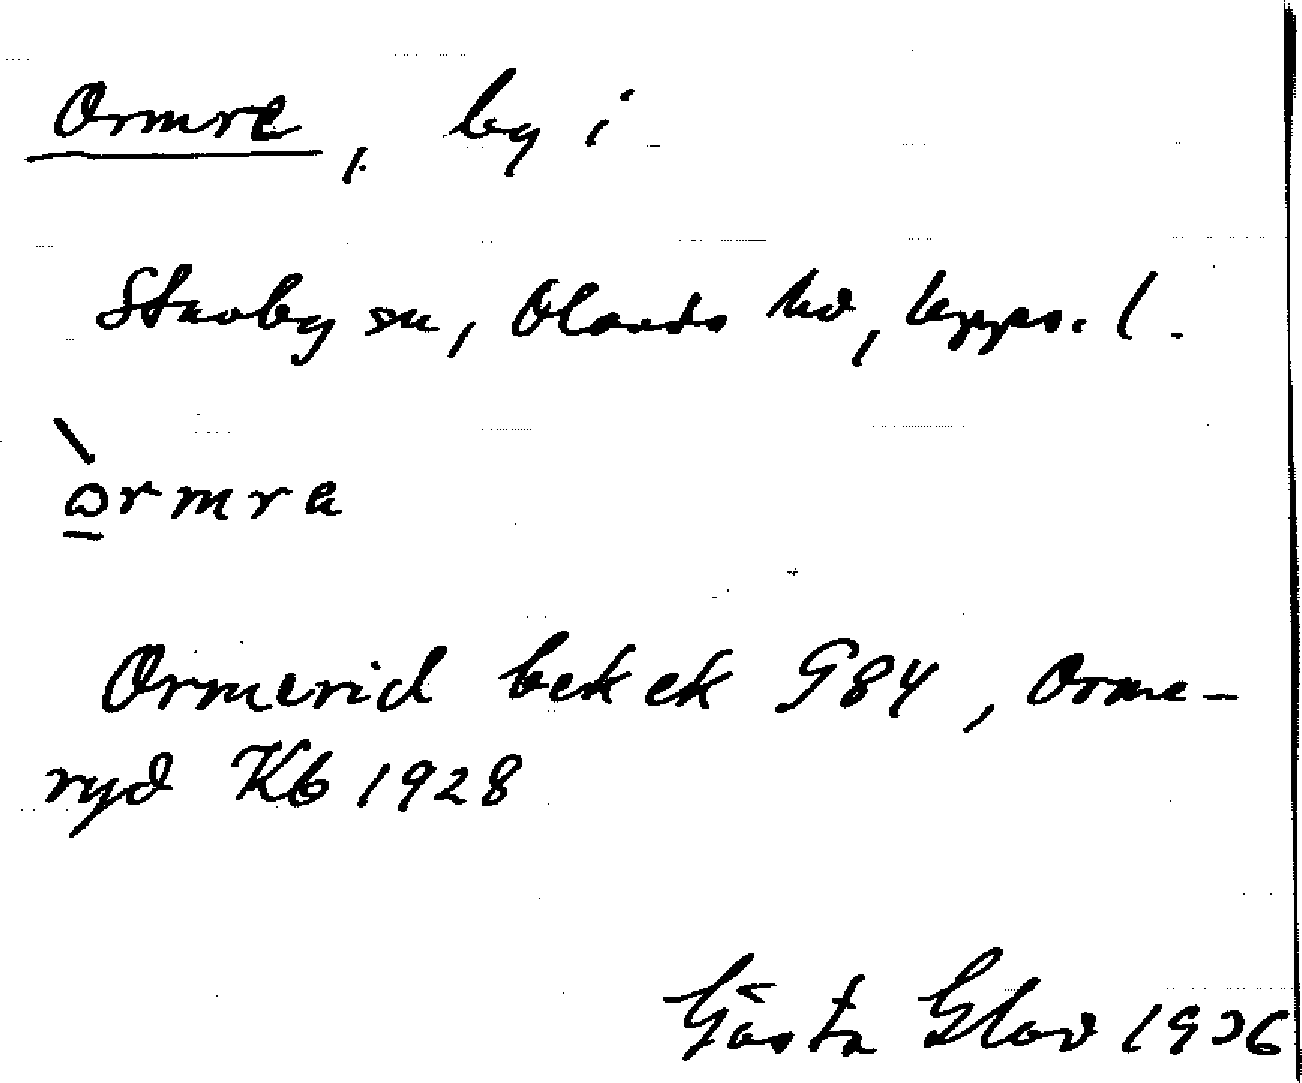 Ormre, by i
Stavby sn, Olands hd, Upps. l.
ormra
Ormerid bek ek G84, Orme-
ryd Kb 1928
Gösta Glav 1936